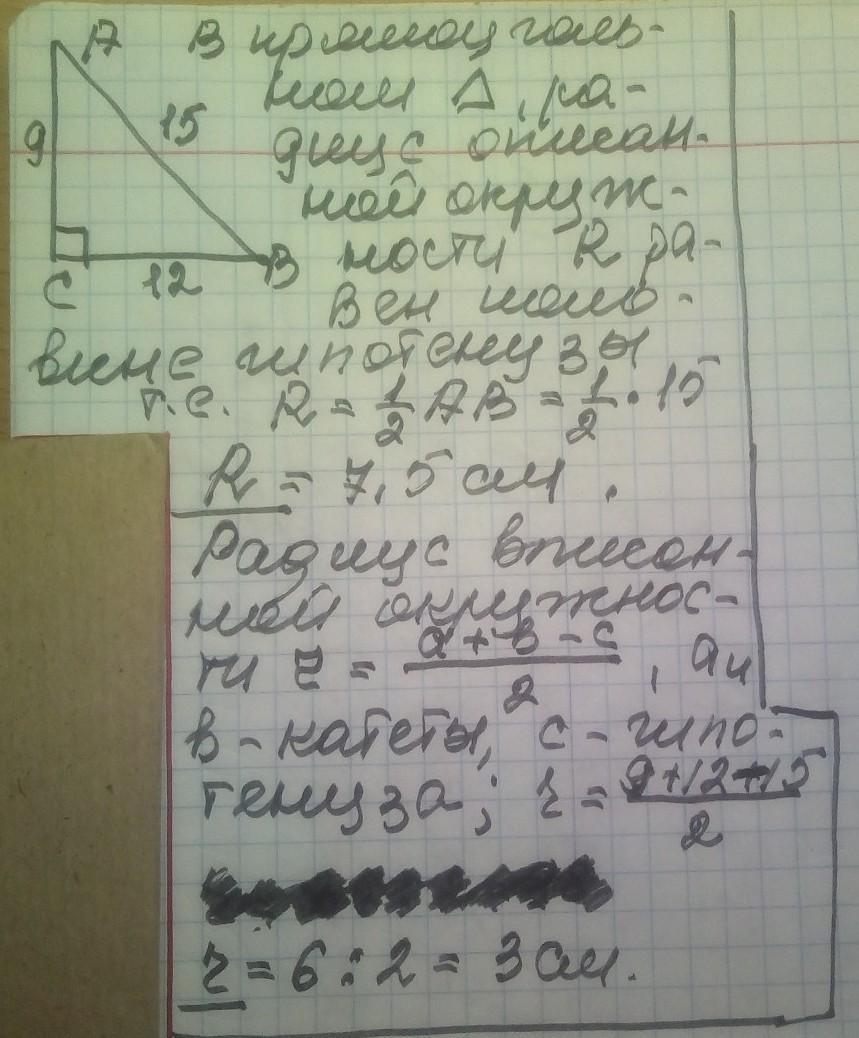 A В прямоуголь-
ном Δ, ра-
9 15 диус описан-
ной окруж-
ности R ра-
C 12 B
вен поло-
вине гипотенузы
т.е. R = 1/2 AB = 1/2 · 15
R = 7,5 см.
Радиус вписан-
ной окружнос-
ти r = (a+в-c)/2, а и
в-катеты, с-гипо-
тенуза; r = (9+12-15)/2
r = 6:2 = 3 см.